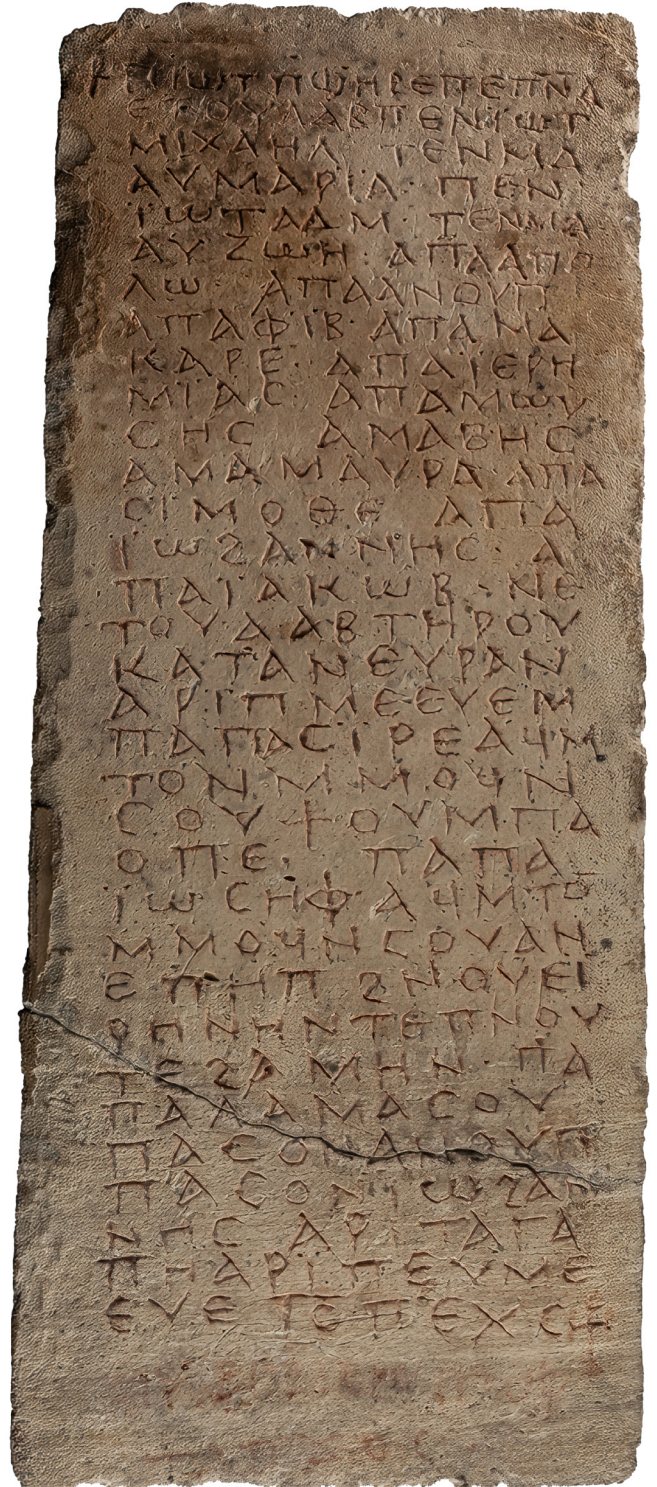 ⲡⲓⲱⲧ ⲡϣⲏⲣⲉ ⲡⲉⲡⲛⲁ
ⲉⲧⲟⲩⲁⲁⲃ ⲡⲉⲛⲓⲱⲧ
ⲙⲓⲭⲁⲏⲗ · ⲧⲉⲛⲙⲁ
ⲁⲩ ⲙⲁⲣⲓⲁ · ⲡⲉⲛ
ⲓ̈ⲱⲧ ⲁⲇⲁⲙ · ⲧⲉⲛⲙⲁ
ⲁⲩ ⲍⲱⲏ · ⲁⲡⲁ ⲁⲡⲟ
ⲗⲱ · ⲁⲡⲁ ⲁⲛⲟⲩⲡ
ⲁⲡⲁ ⲫⲓⲃ · ⲁⲡⲁ ⲙⲁ
ⲕⲁⲣⲉ · ⲁⲡⲁ ⲓ̈ⲉⲣⲏ
ⲙⲓⲁⲥ · ⲁⲡⲁ ⲙⲱⲩ
ⲥⲏⲥ ⲁⲙⲁ ⲃⲏⲥ
ⲁⲙⲁ ⲙⲁⲩⲣⲁ ⲁⲡⲁ
ⲥⲓⲙⲟⲑⲉ ⲁⲡⲁ
ⲓ̈ⲱϩⲁⲛⲛⲏⲥ · ⲁ
ⲡⲁ ⲓ̈ⲁⲕⲱⲃ · ⲛⲉ
ⲧⲟⲩⲁⲁⲃ ⲧⲏⲣⲟⲩ
ⲕⲁⲧⲁ ⲛⲉⲩⲣⲁⲛ
ⲁⲣⲓ ⲡⲙⲉⲉⲩⲉ ⲙ
ⲡⲁⲡⲁ ⲥⲓⲣⲉ ⲁϥⲙ
ⲧⲟⲛ ⲙⲙⲟϥ ⲛ
ⲥⲟⲩ ⲯⲟⲩ ⲙⲡⲁ
ⲟⲡⲉ · ⲡⲁⲡⲁ
ⲓ̈ⲱⲥⲏⲫ ⲁϥⲙⲧⲟ
ⲙⲙⲟϥ ⲛⲥⲟⲩ ⲁⲛ
ⲉⲡⲏⲡ ϩⲛ ⲟⲩⲉⲓ
ⲣⲏⲛⲏ ⲛⲧⲉ ⲡⲛⲟⲩ
ⲧⲉ ϩⲁⲙⲏⲛ ⲡⲁ
ⲡⲁ ⲇⲁⲙⲁⲥⲟⲩ
ⲡⲁⲥⲟⲛ ⲁⲛⲟⲩⲡ
ⲡⲁⲥⲟⲛ ⲓⲱϩⲁⲛ
ⲛⲏⲥ ⲁⲣⲓ ⲧⲁⲅⲁ
ⲡⲏ ⲁⲣⲓ ⲡⲉⲩⲙⲉ
ⲉⲩⲉ ⲓⲥ ⲡⲉⲭⲥ